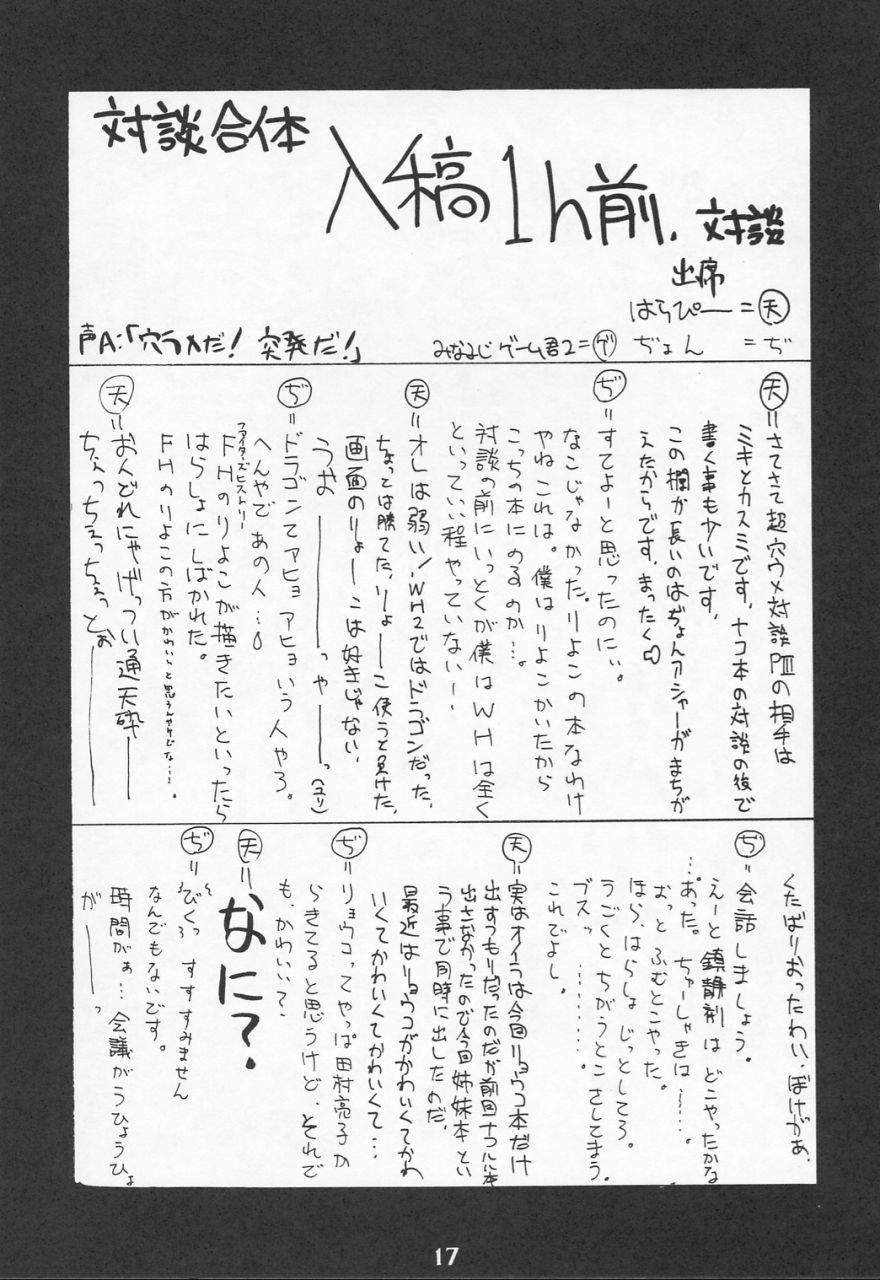 対談合体
入稿1h前.対談
出席
はらぴー=天
みなみじゲーム君2=ゲ ぢょん =ぢ
声A:「穴ウメだ!突発だ!」
天=さてさて超穴ウメ対談PⅢの相手は
ミキとカスミです、ナコ本の対談の後で
書く事も少いです、
この欄が長いのはぢょんアシャーがまちが
えたからです、まったく
ぢ=すてよーと思ったのに。
なこじゃなかった。りよこの本なわけ
やねこれは。僕はりよこかいたから
こっちの本にのるのか…。
対談の前にいっとくが僕はWHは全く
といっていい程やっていないー、
天=オレは弱い!WH2ではドラゴンだった、
ちょっとは勝てた、りょーこ使うと負けた、
画面のりょーこは好きじゃない、
うおーーっやーーっ(ユリ)
ぢ=ドラゴンてアヒョアヒョいう人やろ。
へんやであの人…。
ファイターズヒストリー
FHのりよこが描きたいといったら
はらしょにしばかれた。
FHのりよこの方がかわいこと思うんやけどな…。
天=おんどれにゃげっつい通天砕ーー
ちぇっちぇっちぇっとぉーー
くたばりおったわい、ぼけがぁ、
ぢ=会話しましょう。
えーと鎮静剤はどこやったかな
…あった。ちゅーしゃきは……。
おっとふむとこやった。
ほら、はらしょじっとしてろ。
うごくとちがうとこさしてまう。
ブスッ…………。
これでよし。
天=実はオイラは今回リョウコ本だけ
出すつもりだったのだが前回ナコルル本
出さなかったので今回姉妹本とい
う事で同時に出したのだ、
最近はリョウコがかわいくてかわ
いくてかわいくてかわいくて…
ぢ=リョウコってやっぱ田村亮子か
らきてると思うけど、それで
も、かわいい?
天=なに?.
ぢ=びくっすすすみません
なんでもないです。
時間がぁ…会議がうひょうひょ
がーーっ
17